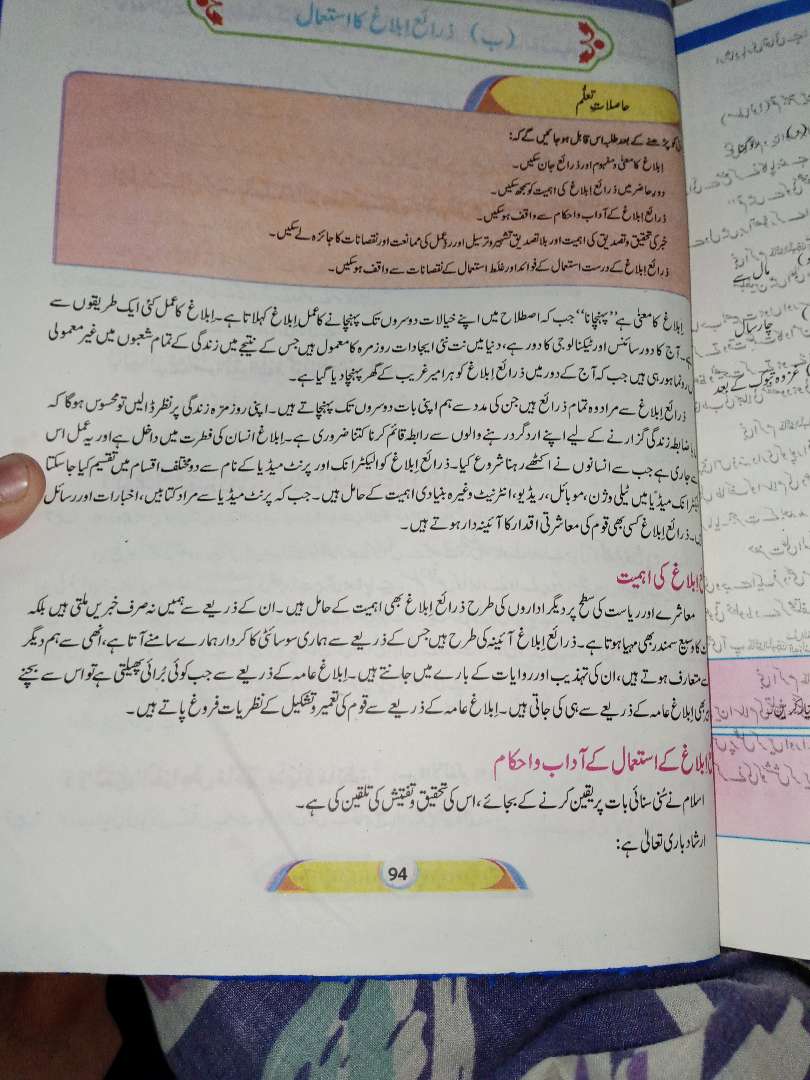 (ب) ذرائع اِبلاغ کا استعمال
حاصلاتِ تعلّم
کو پڑھنے کے بعد طلبہ اس قابل ہو جائیں گے کہ:
اِبلاغ کا معنٰی و مفہوم اور ذرائع جان سکیں۔
دورِ حاضر میں ذرائع اِبلاغ کی اہمیت کو سمجھ سکیں۔
ذرائع اِبلاغ کے آداب و احکام سے واقف ہو سکیں۔
خبر کی تحقیق و تصدیق کی اہمیت اور بلا تصدیق تشہیر و ترسیل اور ردِّ عمل کی ممانعت اور نقصانات کا جائزہ لے سکیں۔
ذرائع اِبلاغ کے درست استعمال کے فوائد اور غلط استعمال کے نقصانات سے واقف ہو سکیں۔
اِبلاغ کا معنٰی ہے ”پہنچانا“ جب کہ اصطلاح میں اپنے خیالات دوسروں تک پہنچانے کا عمل اِبلاغ کہلاتا ہے۔ اِبلاغ کا عمل کئی ایک طریقوں سے
ہے۔ آج کا دور سائنس اور ٹیکنالوجی کا دور ہے، دنیا میں نت نئی ایجادات روز مرہ کا معمول ہیں جس کے نتیجے میں زندگی کے تمام شعبوں میں غیر معمولی
رونما ہو رہی ہیں جب کہ آج کے دور میں ذرائع اِبلاغ کو ہر امیر غریب کے گھر پہنچا دیا گیا ہے۔
ذرائع اِبلاغ سے مراد وہ تمام ذرائع ہیں جن کی مدد سے ہم اپنی بات دوسروں تک پہنچاتے ہیں۔ اپنی روز مرّہ زندگی پر نظر ڈالیں تو محسوس ہوگا کہ
با ضابطہ زندگی گزارنے کے لیے اپنے ارد گرد رہنے والوں سے رابطہ قائم کرنا کتنا ضروری ہے۔ اِبلاغ انسان کی فطرت میں داخل ہے اور یہ عمل اس
سے جاری ہے جب سے انسانوں نے اکٹھے رہنا شروع کیا۔ ذرائع اِبلاغ کو الیکٹرانک اور پرنٹ میڈیا کے نام سے دو مختلف اقسام میں تقسیم کیا جا سکتا
میڈیا میں ٹیلی وژن، موبائل، ریڈیو، انٹرنیٹ وغیرہ بنیادی اہمیت کے حامل ہیں۔ جب کہ پرنٹ میڈیا سے مراد کتابیں، اخبارات اور رسائل
ہیں۔ ذرائع اِبلاغ کسی بھی قوم کی معاشرتی اقدار کا آئینہ دار ہوتے ہیں۔
اِبلاغ کی اہمیت
معاشرے اور ریاست کی سطح پر دیگر اداروں کی طرح ذرائع اِبلاغ بھی اہمیت کے حامل ہیں۔ ان کے ذریعے سے ہمیں نہ صرف خبریں ملتی ہیں بلکہ
کا وسیع سمندر بھی مہیا ہوتا ہے۔ ذرائع اِبلاغ آئینہ کی طرح ہیں جس کے ذریعے سے ہماری سوسائٹی کا کردار ہمارے سامنے آتا ہے، انھی سے ہم دیگر
سے متعارف ہوتے ہیں، ان کی تہذیب اور روایات کے بارے میں جانتے ہیں۔ اِبلاغِ عامہ کے ذریعے سے جب کوئی بُرائی پھیلتی ہے تو اس سے بچنے
بھی اِبلاغِ عامہ کے ذریعے سے ہی کی جاتی ہیں۔ اِبلاغِ عامہ کے ذریعے سے قوم کی تعمیر و تشکیل کے نظریات فروغ پاتے ہیں۔
اِبلاغ کے استعمال کے آداب و احکام
اسلام نے سُنی سنائی بات پر یقین کرنے کے بجائے، اس کی تحقیق و تفتیش کی تلقین کی ہے۔
ارشادِ باری تعالیٰ ہے:
94
مال سے
چار سال
غزوہ تبوک کے بعد